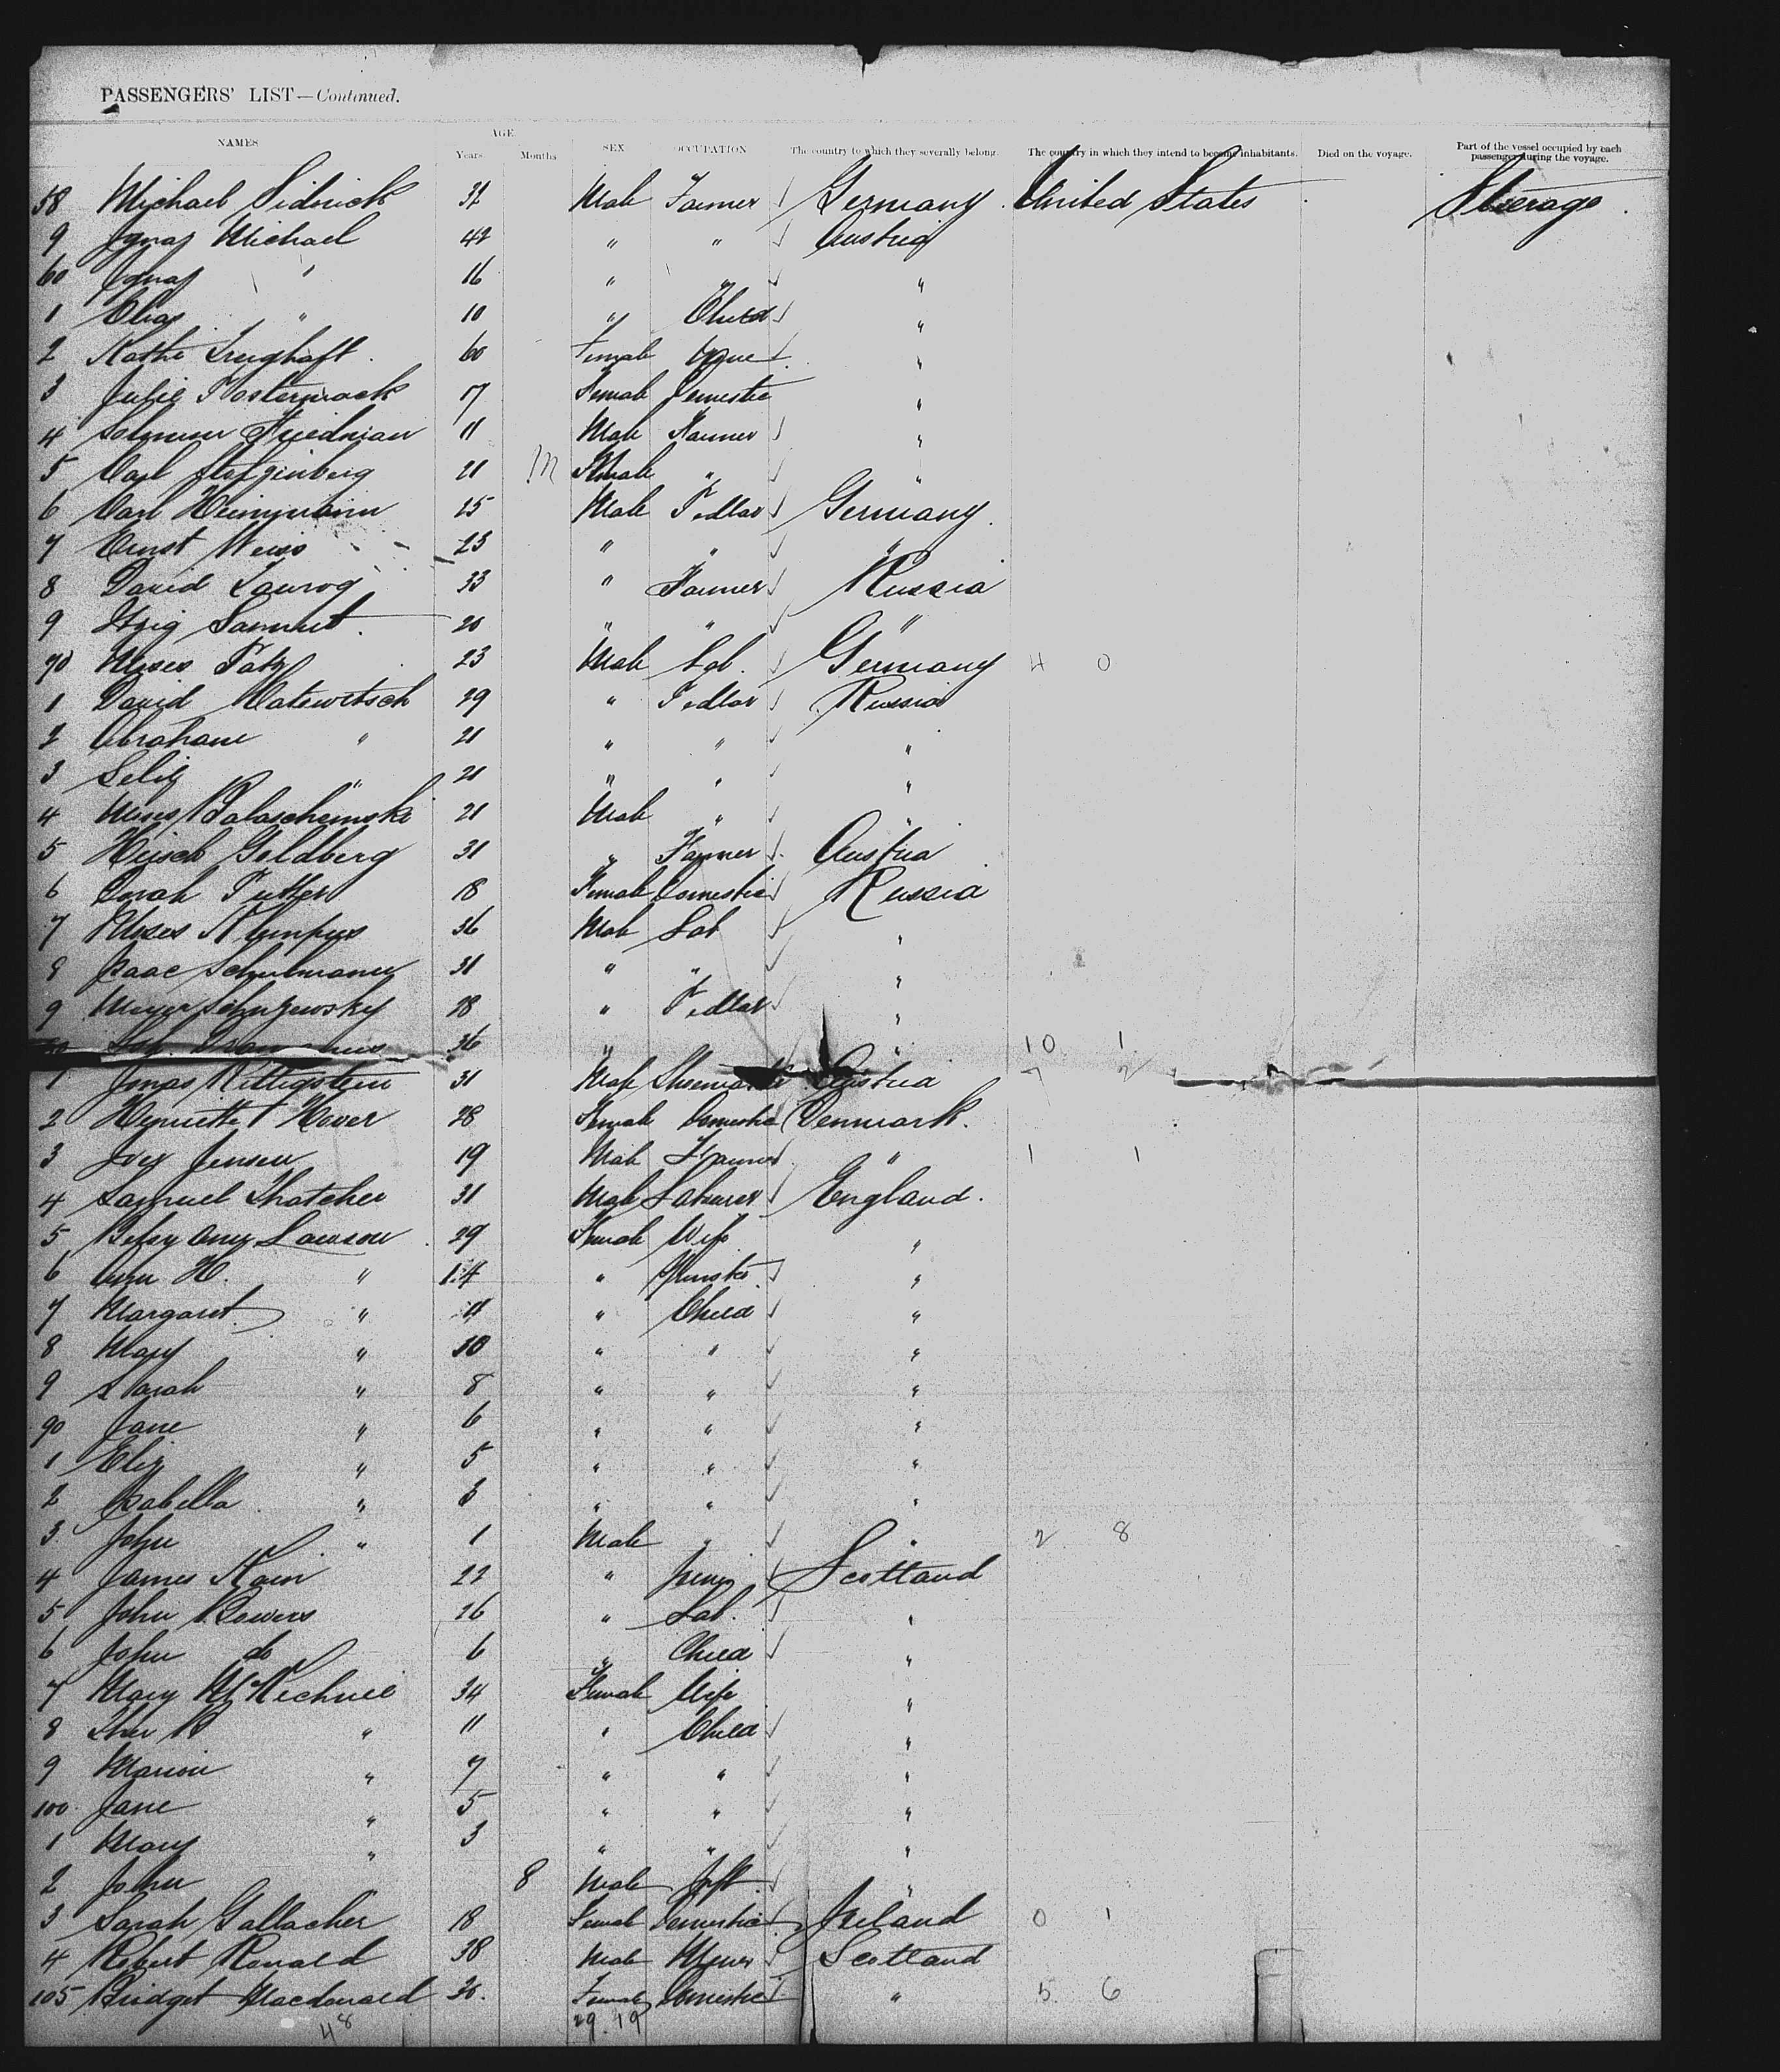 PASSENGERS' LIST—Continued.
NAMES AGE Years. Months SEX OCCUPATION The country to which they severally belong. The country in which they intend to become inhabitants. Died on the voyage. Part of the vessel occupied by each passenger during the voyage.
58 Michael Sidrick 32 Male Farmer Germany United States Steerage
9 Ignaz Michael 42 " " Austria
60 Ignaz " 16 " " "
1 Elias " 10 " Child "
2 Kathe 60 Female "
3 Julie 17 Female Domestic "
4 Friedman 11 Male Farmer "
5 Carl 21 M Female " "
6 Carl 25 Male Pedlar Germany
7 Ernst Weiss 23 " " "
8 David Taurog 33 " Farmer Russia
9 Itzig Sammet 20 " " "
70 Moses Patz 23 Male Lab. Germany 4 0
1 David Matewitsch 29 " Pedlar Russia
2 Abraham " 21 " " "
3 Selig " 21 " " "
4 Moses 21 Male " "
5 Hirsch Goldberg 31 " Farmer Austria
6 18 Female Domestic Russia
7 Moses 36 Male Lab "
8 Isaac Schulmann 31 " " "
9 Meyer 28 " Pedlar "
36 " " 10 1
1 Jonas Rittigstein 31 Male Austria 7 2
2 Henriette Hover 28 Female Domestic Denmark.
3 Jensen 19 Male Farmer " 1 1
4 Samuel Thatcher 31 Male Labourer England.
5 Betsy Amy Lawson 29 Female Wife "
6 Ann H. " 14 " "
7 Margaret " 11 " Child "
8 Mary " 10 " " "
9 Sarah " 8 " " "
90 Jane " 6 " " "
1 Eliz " 5 " " "
2 Isabella " 3 " " "
3 John " 1 Male " " 2 8
4 James 22 " Scotland
5 John Bowers 26 " Lab. "
6 John do 6 " Child "
7 Mary McKechnie 34 Female Wife "
8 " 11 " Child "
9 Marion " 7 " " "
100 Jane " 5 " " "
1 Mary " 3 " " "
2 John " 8 Male Inft "
3 Sarah Gallacher 18 Female Domestic Ireland 0 1
4 Robert Ronald 38 Male Miner Scotland
105 Bridget Macdonald 20. Female Domestic " 5 6
48 29 19